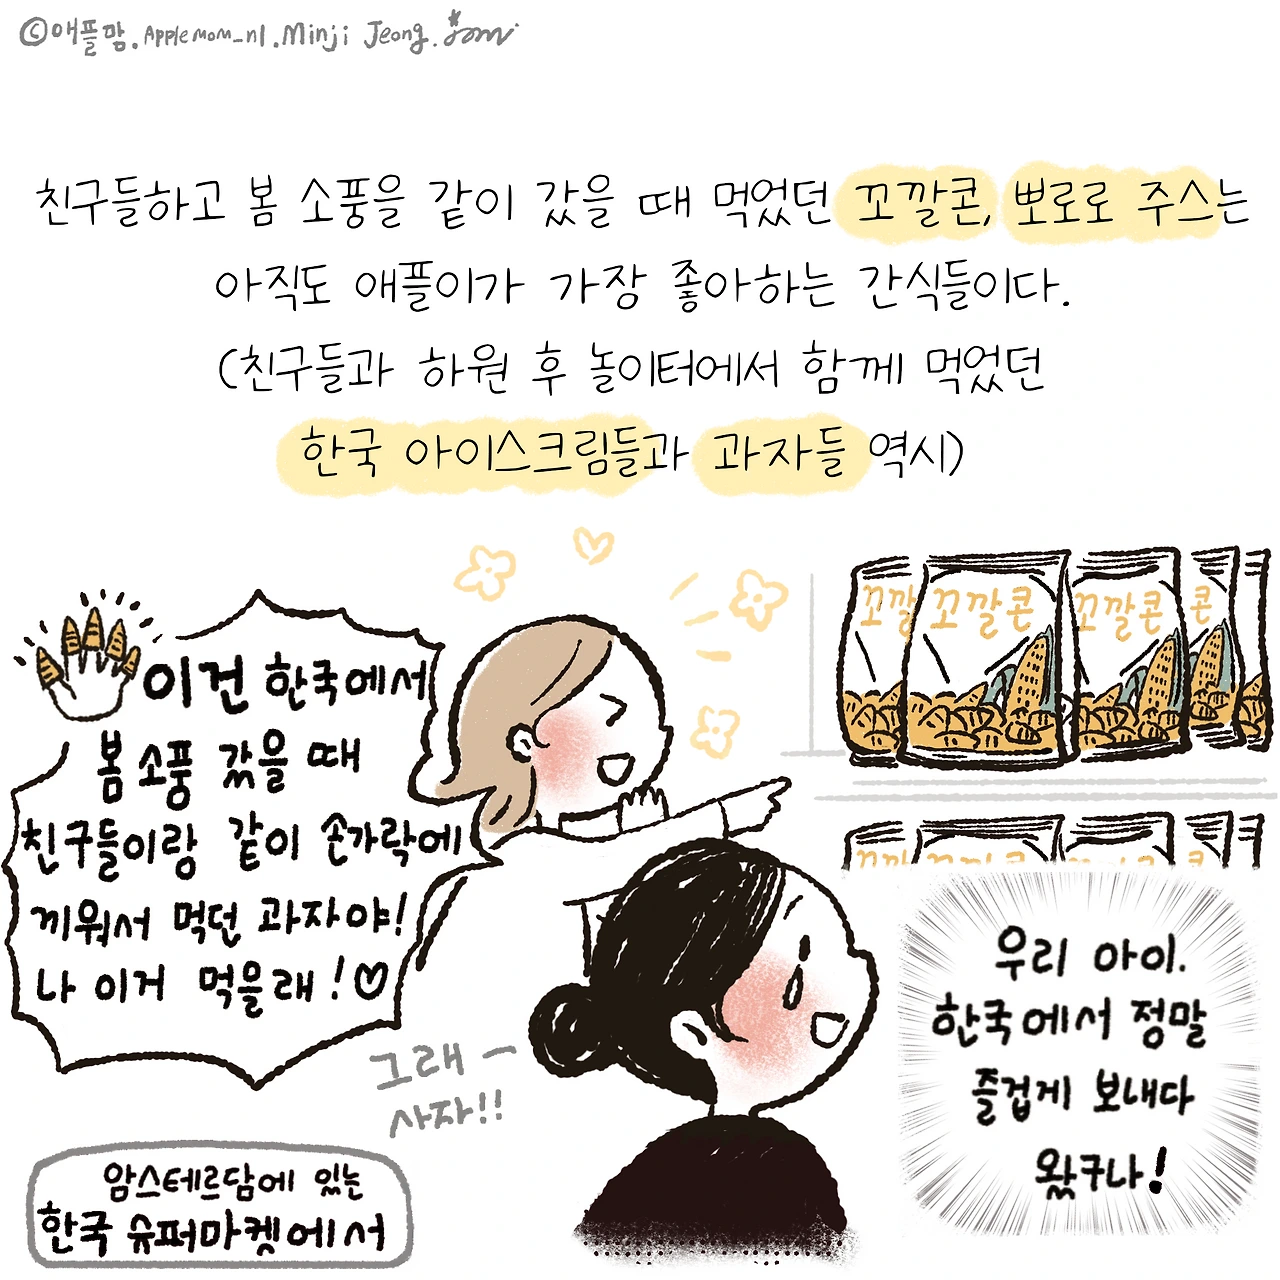 ©애플맘.Applemom_nl.Minji Jeong.
친구들하고 봄 소풍을 같이 갔을 때 먹었던 꼬깔콘, 뽀로로 주스는
아직도 애플이가 가장 좋아하는 간식들이다.
(친구들과 하원 후 놀이터에서 함께 먹었던
한국 아이스크림들과 과자들 역시)
이건 한국에서
봄 소풍 갔을 때
친구들이랑 같이 손가락에
끼워서 먹던 과자야!
나 이거 먹을래!♡
꼬깔 꼬깔콘 꼬깔콘 콘
그래 —
사자!!
우리 아이.
한국에서 정말
즐겁게 보내다
왔구나!
암스테르담에 있는
한국 슈퍼마켓에서